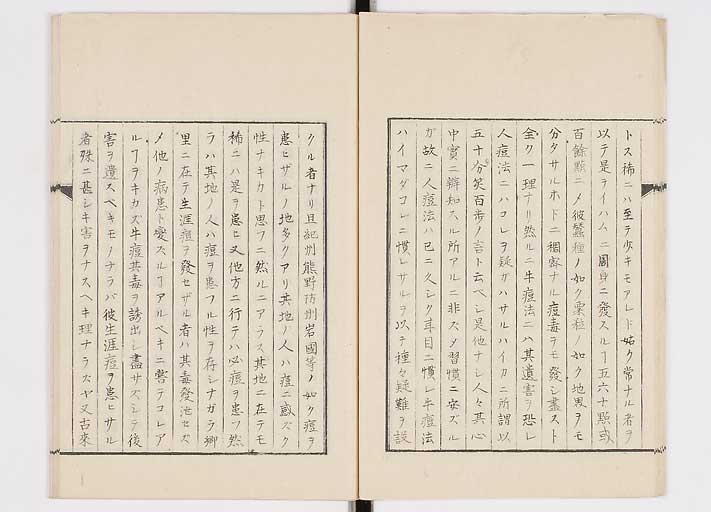 トス稀ニハ至テ少キモアレド姑ク常ナル者ヲ
以テ是ヲイハムニ周身ニ發スルヿ五六十顆或
百餘顆ニメ彼蠶種ノ如ク粟粒ノ如ク地界ヲモ
分タサルホドニ稠密ナル痘毒ヲモ發シ盡スト
全ク一理ナリ然ルニ牛痘法ニハ其遺害ヲ恐レ
人痘法ニハコレヲ疑ガハサルハイカニ所謂以
五十分笑百歩ノ言ト云ベシ是他ナシ人々其心
中實ニ辨知スル所アルニ非ズメ習慣ニ安ズル
ガ故ニ人痘法ハ已ニ久シク耳目ニ慣レ牛痘法
ハイマダコレニ慣レサルヲ以テ種々疑難ヲ設
クル者ナリ且紀州熊野防州岩國等ノ如ク痘ヲ
患ヒザルノ地多クアリ其地ノ人ハ痘ニ感ズク
性ナキカト思フニ然ルニアラス其地ニ在テモ
稀ニハ是ヲ患ヒ又他方ニ行テハ必痘ヲ患フ然
ラハ其地ノ人ハ痘ヲ患フル性ヲ存シナガラ郷
里ニ在テ生涯痘ヲ發セザル者ハ其毒發泄セズ
メ他ノ病患ト變スルヿアルベキニ嘗テコレア
ルヿヲキカズ牛痘其毒ヲ誘出シ盡サズシテ後
害ヲ遺スベキモノナラバ彼生涯痘ヲ患ヒサル
者殊ニ甚シキ害ヲナスヘキ理ナラズヤ又古來